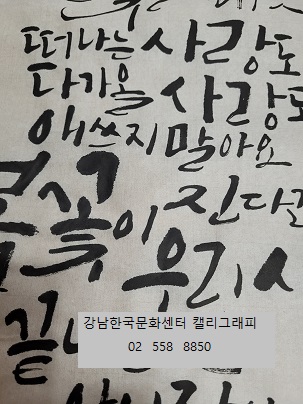 떠나는 사랑도
다가올 사랑도
애쓰지 말아요
꽃이 진다
우리
끝
강남한국문화센터 캘리그래피
02 558 8850